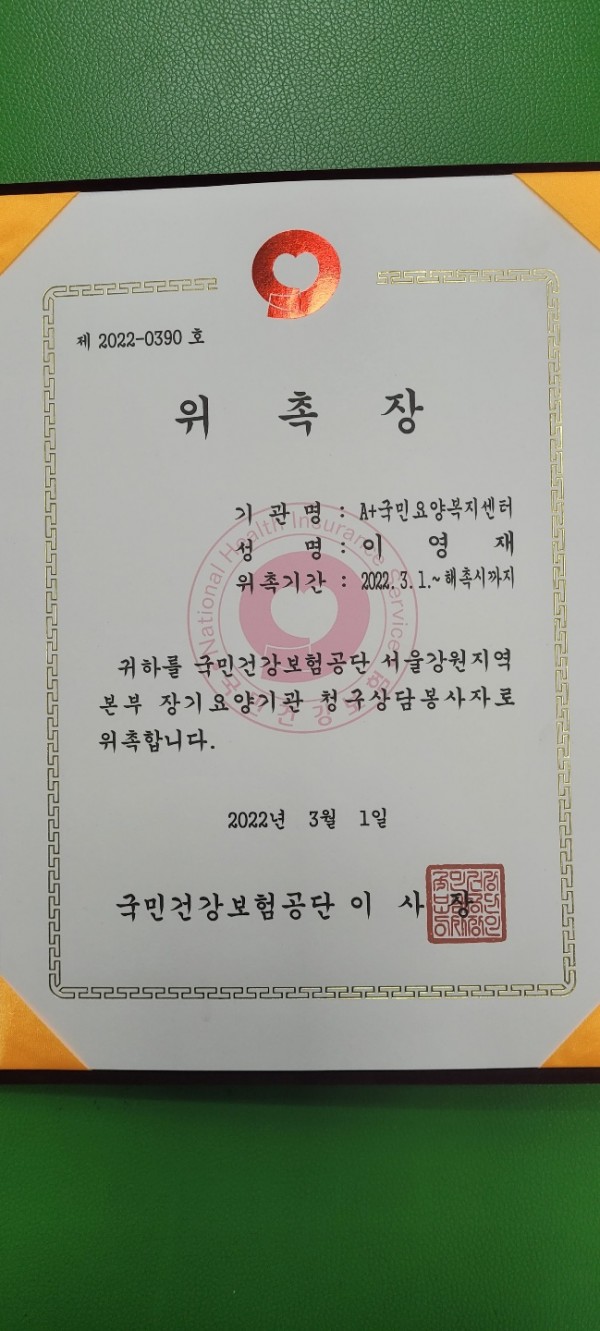 제 2022-0390 호
위 촉 장
기 관 명 : A+국민요양복지센터
성 명 : 이 영 재
위촉기간 : 2022. 3. 1.~해촉시까지
National Health Insurance Service
국민건강보험
귀하를 국민건강보험공단 서울강원지역
본부 장기요양기관 청구상담봉사자로
위촉합니다.
2022년 3월 1일
국민건강보험공단 이 사 장